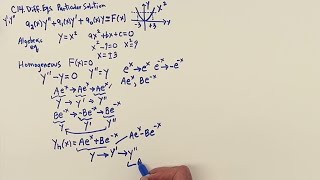 C14. Diff. Eqs Particular Solution
y', y" a₂(x)y" + a₁(x)y' + a₀(x)y = F(x)
Algebraic eq y = x² ax² + bx + c = 0
x² - 9 = 0 x² = 9
x = ±3
-3 3
Homogeneous F(x) = 0
y" - y = 0 y" = y eˣ → eˣ e⁻ˣ → -e⁻ˣ
Aeˣ → Aeˣ → Aeˣ, Aeˣ, Be⁻ˣ
y → y' → y"
Be⁻ˣ → -Be⁻ˣ → Be⁻ˣ
y y' y"
yₕ(x) = Aeˣ + Be⁻ˣ Aeˣ - Be⁻ˣ
y → y' → y"